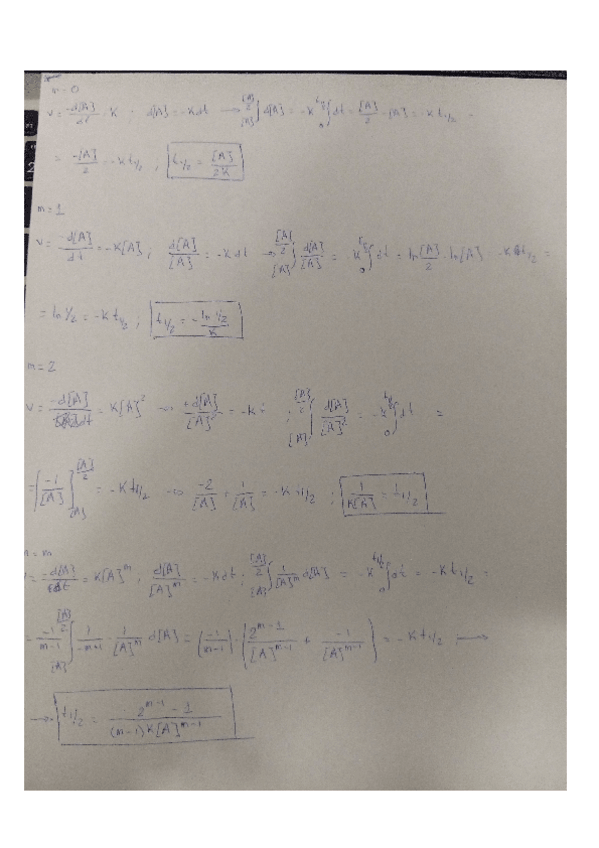 m = 0
v = -d[A]/dt = K - d[A] = -K dt → ∫_{[A]}^{[A]/2} d[A] = -K ∫_0^{t_{1/2}} dt = [A]/2 - [A] = -K t_{1/2} =
= -[A]/2 = -K t_{1/2} ; t_{1/2} = [A]/2K
m = 1
v = -d[A]/dt = -K[A] ; d[A]/[A] = -K dt → ∫_{[A]}^{[A]/2} d[A]/[A] = K ∫_0^{t_{1/2}} dt = ln [A]/2 - ln[A] = -K t_{1/2} =
= ln 1/2 = -K t_{1/2} ; t_{1/2} = -ln 1/2 / K
m = 2
v = -d[A]/dt = K[A]^2 → +d[A]/[A]^2 = -K t ; ∫_{[A]}^{[A]/2} d[A]/[A]^2 = -K ∫_0^{t_{1/2}} dt =
= [-1/[A]]_{[A]}^{[A]/2} = -K t_{1/2} → -2/[A] + 1/[A] = -K t_{1/2} ; 1/K[A] = t_{1/2}
m = m
v = -d[A]/dt = K[A]^m ; d[A]/[A]^m = -K dt ; ∫_{[A]}^{[A]/2} 1/[A]^m d[A] = -K ∫_0^{t_{1/2}} dt = -K t_{1/2} =
= -1/m-1 ∫_{[A]}^{[A]/2} 1/-m+1 · 1/[A]^m d[A] = (-1/m-1) · (2^{m-1}/[A]^{m-1} + -1/[A]^{m-1}) = -K t_{1/2} →
→ t_{1/2} = 2^{m-1} - 1 / (m-1)K[A]^{m-1}